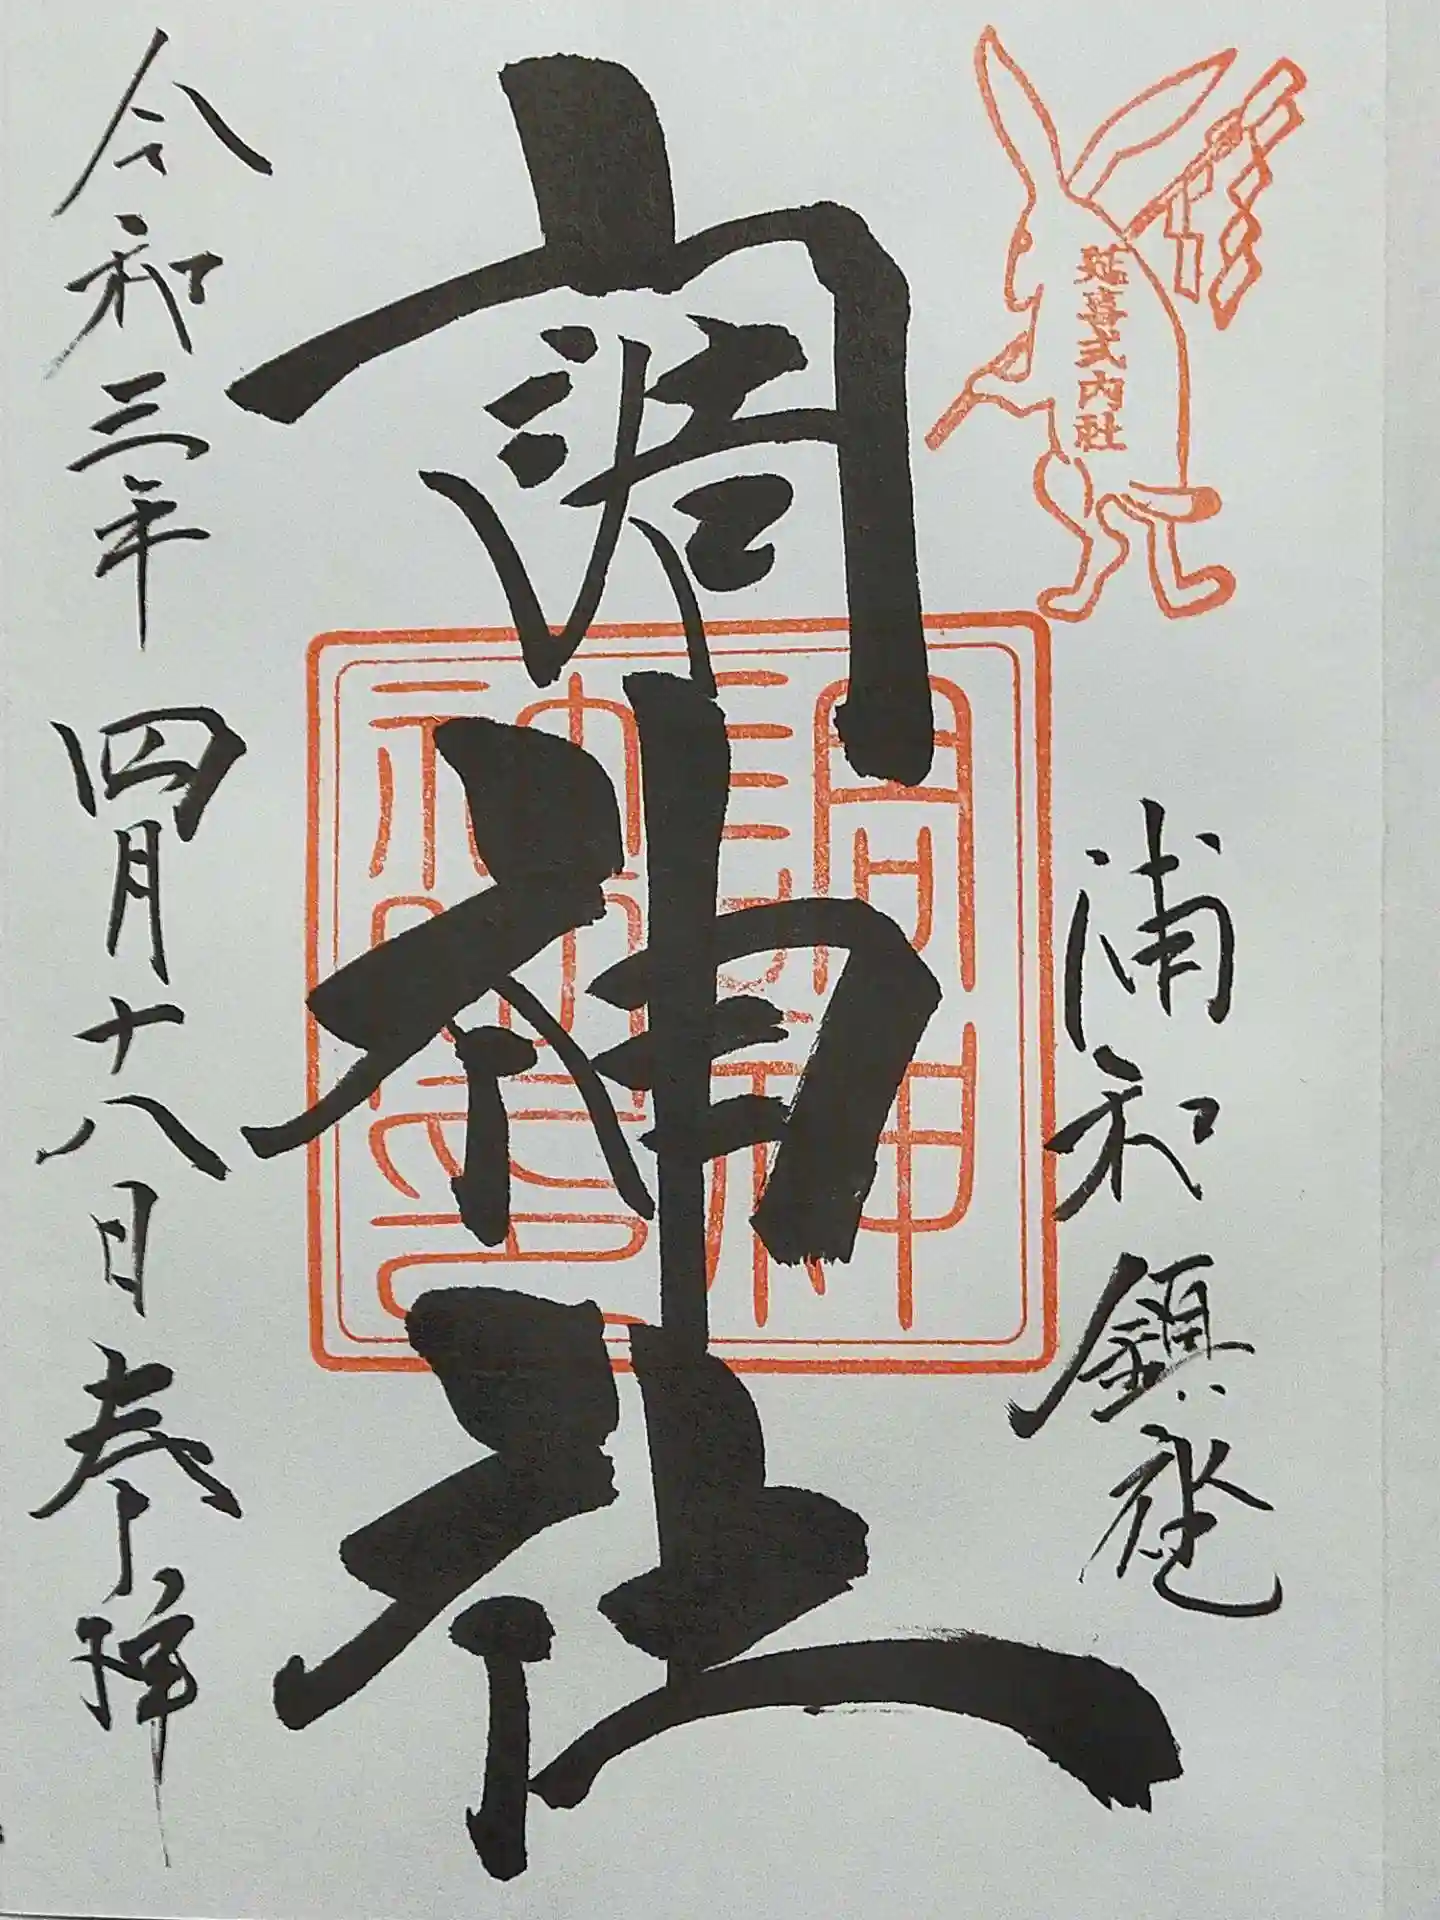 延喜式内社
浦和鎮座
調神社
調神社印
令和三年四月十八日奉拝